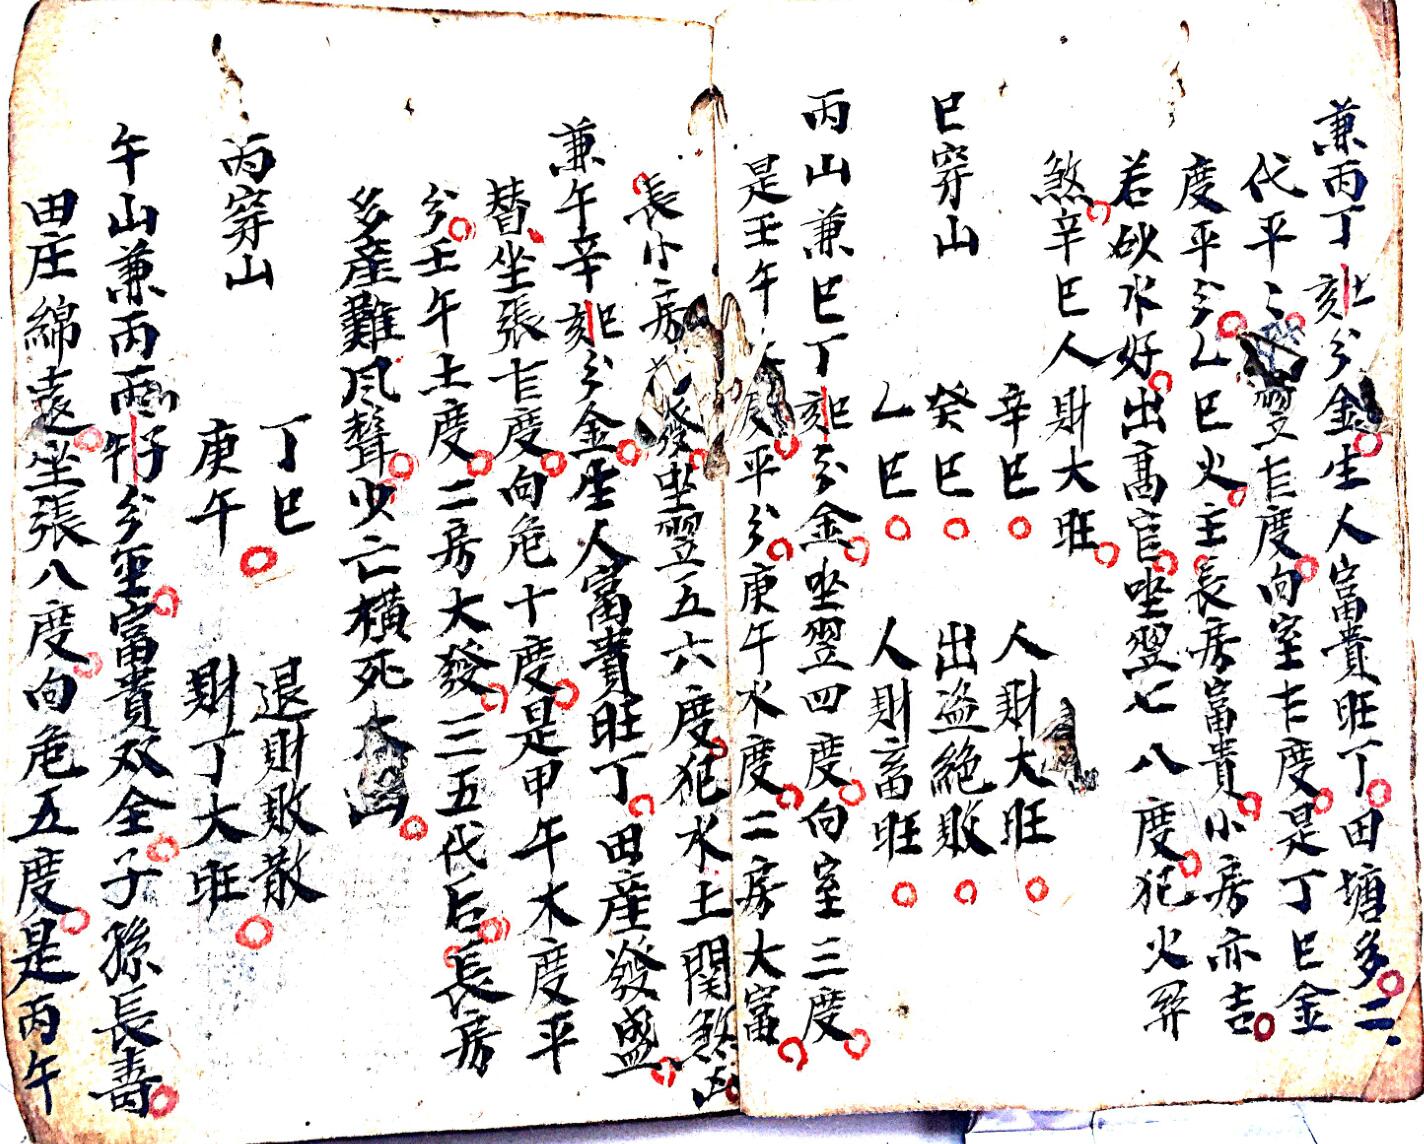 兼丙丁巳刻分金生人富貴旺丁田塘多二
代平坐翌七度向室七度是丁巳金
度平分乙巳火主長房富貴小房亦吉
若砂水好出高官坐翌七八度犯火羅
煞辛巳人財大旺
辛巳 人財大旺
巳穿山 癸巳 出盗絕敗
乙巳 人財畜旺
丙山兼巳丁巳刻分金坐翌四度向室三度
是壬午度平分庚午水度二房大富
長小房發坐翌五六度犯水土関煞凶
兼午辛巳刻分金生人富貴旺丁田産發盛
替坐張七度向危十度是甲午木度平
分壬午土度二房大發三五代后長房
多産難风聲少亡橫死大凶
丁巳 退財敗散
丙穿山 庚午 財丁大旺
午山兼丙丙午丙子分坐富貴双全子孫長壽
田庄綿遠坐張八度向危五度是丙午